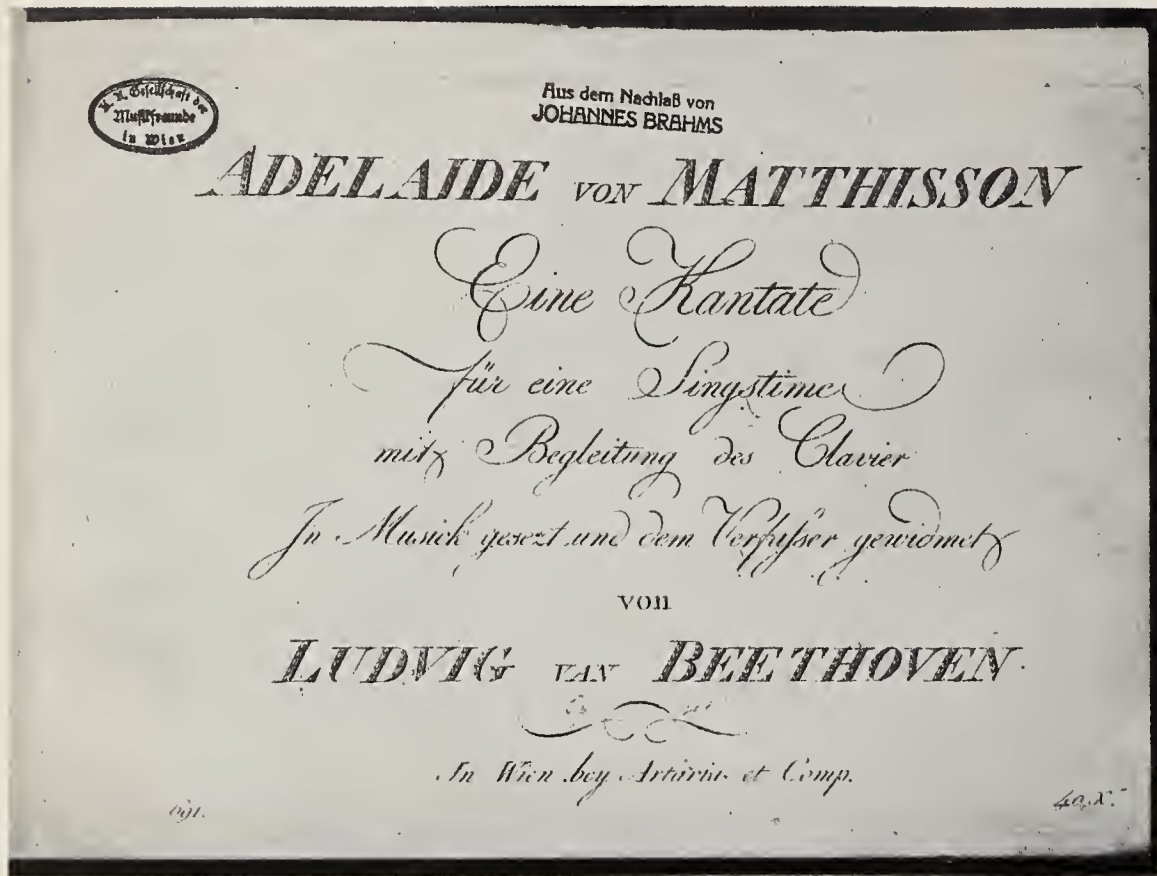 K. K. Gesellschaft der
Musikfreunde
in Wien
Aus dem Nachlaß von
JOHANNES BRAHMS
ADELAIDE VON MATTHISSON
Eine Kantate
für eine Singstime
mit Begleitung des Clavier
In Musick gesezt und dem Verfaßer gewidmet
von
LUDVIG VAN BEETHOVEN
In Wien bey Artaria et Comp.
691.
40 X.